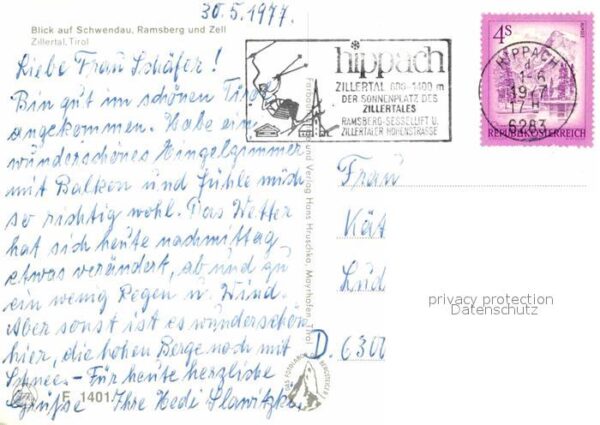 30.5.1977.
Blick auf Schwendau, Ramsberg und Zell
Zillertal, Tirol
Liebe Frau Schäfer!
Bin gut im schönen Tirol
angekommen. Habe ein
wunderschönes Einzelzimmer
mit Balkon und fühle mich
so richtig wohl. Das Wetter
hat sich heute nachmittag
etwas verändert, ab und zu
ein wenig Regen u. Wind.
Aber sonst ist es wunderschön
hier, die hohen Berge noch mit
Schnee. - Für heute herzliche
Grüße Ihre Hedi Slawitzke
F 1401
und Verlag Hans Hruschka, Mayrhofen, Tirol
hippach
ZILLERTAL 600-1400 m
DER SONNENPLATZ DES
ZILLERTALES
RAMSBERG-SESSELLIFT U.
ZILLERTALER HÖHENSTRASSE
4S
REPUBLIK ÖSTERREICH
HIPPACH
1-6
1977
17H
6283
Frau
Kät
Lud
D. 6300
privacy protection
Datenschutz